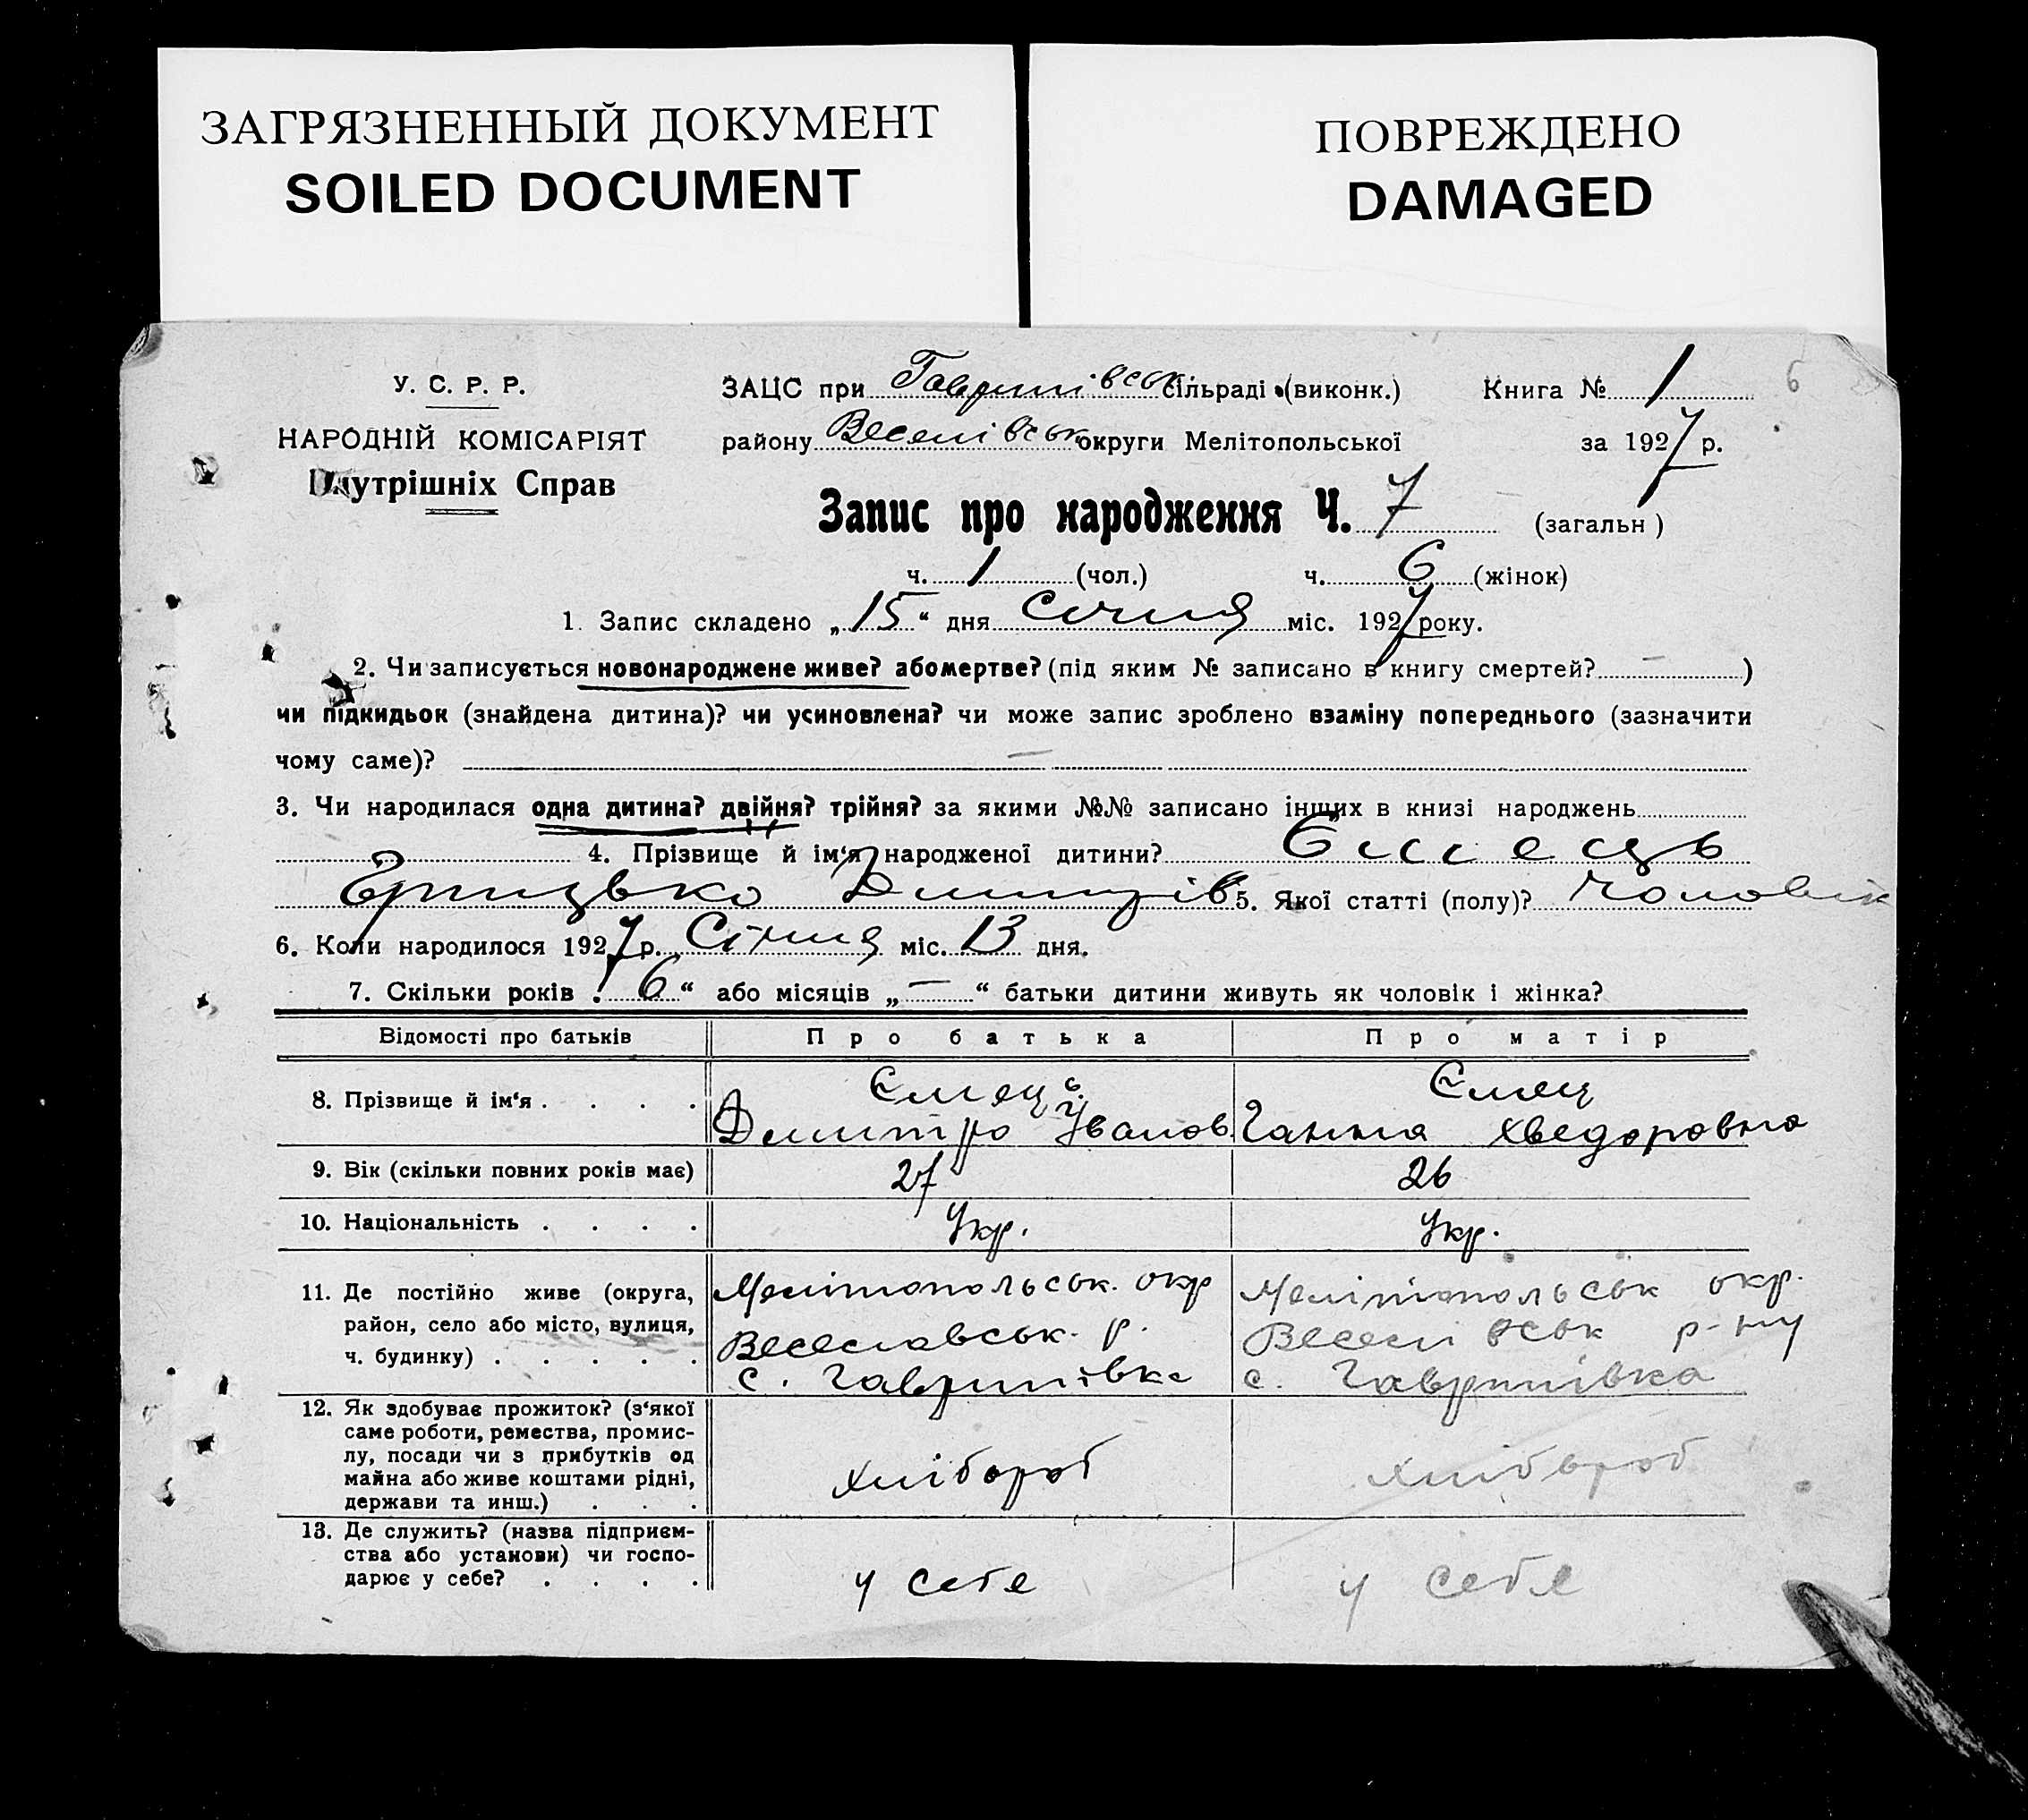 ЗАГРЯЗНЕННЫЙ ДОКУМЕНТ
SOILED DOCUMENT
ПОВРЕЖДЕНО
DAMAGED
У. С. Р. Р.
НАРОДНІЙ КОМІСАРІЯТ
Внутрішніх Справ
ЗАЦС при Гаврилівськ сільраді (виконк.) Книга № 1 6
району Веселівськ округи Мелітопольської за 1927 р.
Запис про народження Ч. 7 (загальн )
ч. 1 (чол.) ч. 6 (жінок)
1. Запис складено „15“ дня Січня міс. 1927 року.
2. Чи записується новонароджене живе? або мертве? (під яким № записано в книгу смертей? — )
чи підкидьок (знайдена дитина)? чи усиновлена? чи може запис зроблено взаміну попереднього (зазначити
чому саме)? —
3. Чи народилася одна дитина? двійня? трійня? за якими №№ записано інщих в книзі народжень
4. Прізвище й ім‘я народженої дитини? Ємець
Грицько Дмитрів 5. Якої статті (полу)? Чоловік
6. Коли народилося 1927 р. Січня міс. 13 дня.
7. Скільки років „6“ або місяців „—“ батьки дитини живуть як чоловік і жінка?
Відомості про батьків Про батька Про матір
8. Прізвище й ім‘я . . . . Ємець Ємец
Дмитро Іванов. Ганна Хведоровна
9. Вік (скільки повних років має) 27 26
10. Національність . . . . Укр. Укр.
11. Де постійно живе (округа, Мелітопольськ. окр Мелітопольськ окр.
район, село або місто, вулиця, Веселавськ. р. Веселівськ р-ну
ч. будинку) . . . . . с. Гаврилівка с. Гаврилівка
12. Як здобуває прожиток? (з‘якої
саме роботи, ремества, промис-
лу, посади чи з прибутків од хлібороб хлібороб
майна або живе коштами рідні,
держави та инш.) . . .
13. Де служить? (назва підприєм-
ства або установи) чи госпо-
дарює у себе? . . . . у себе у себе